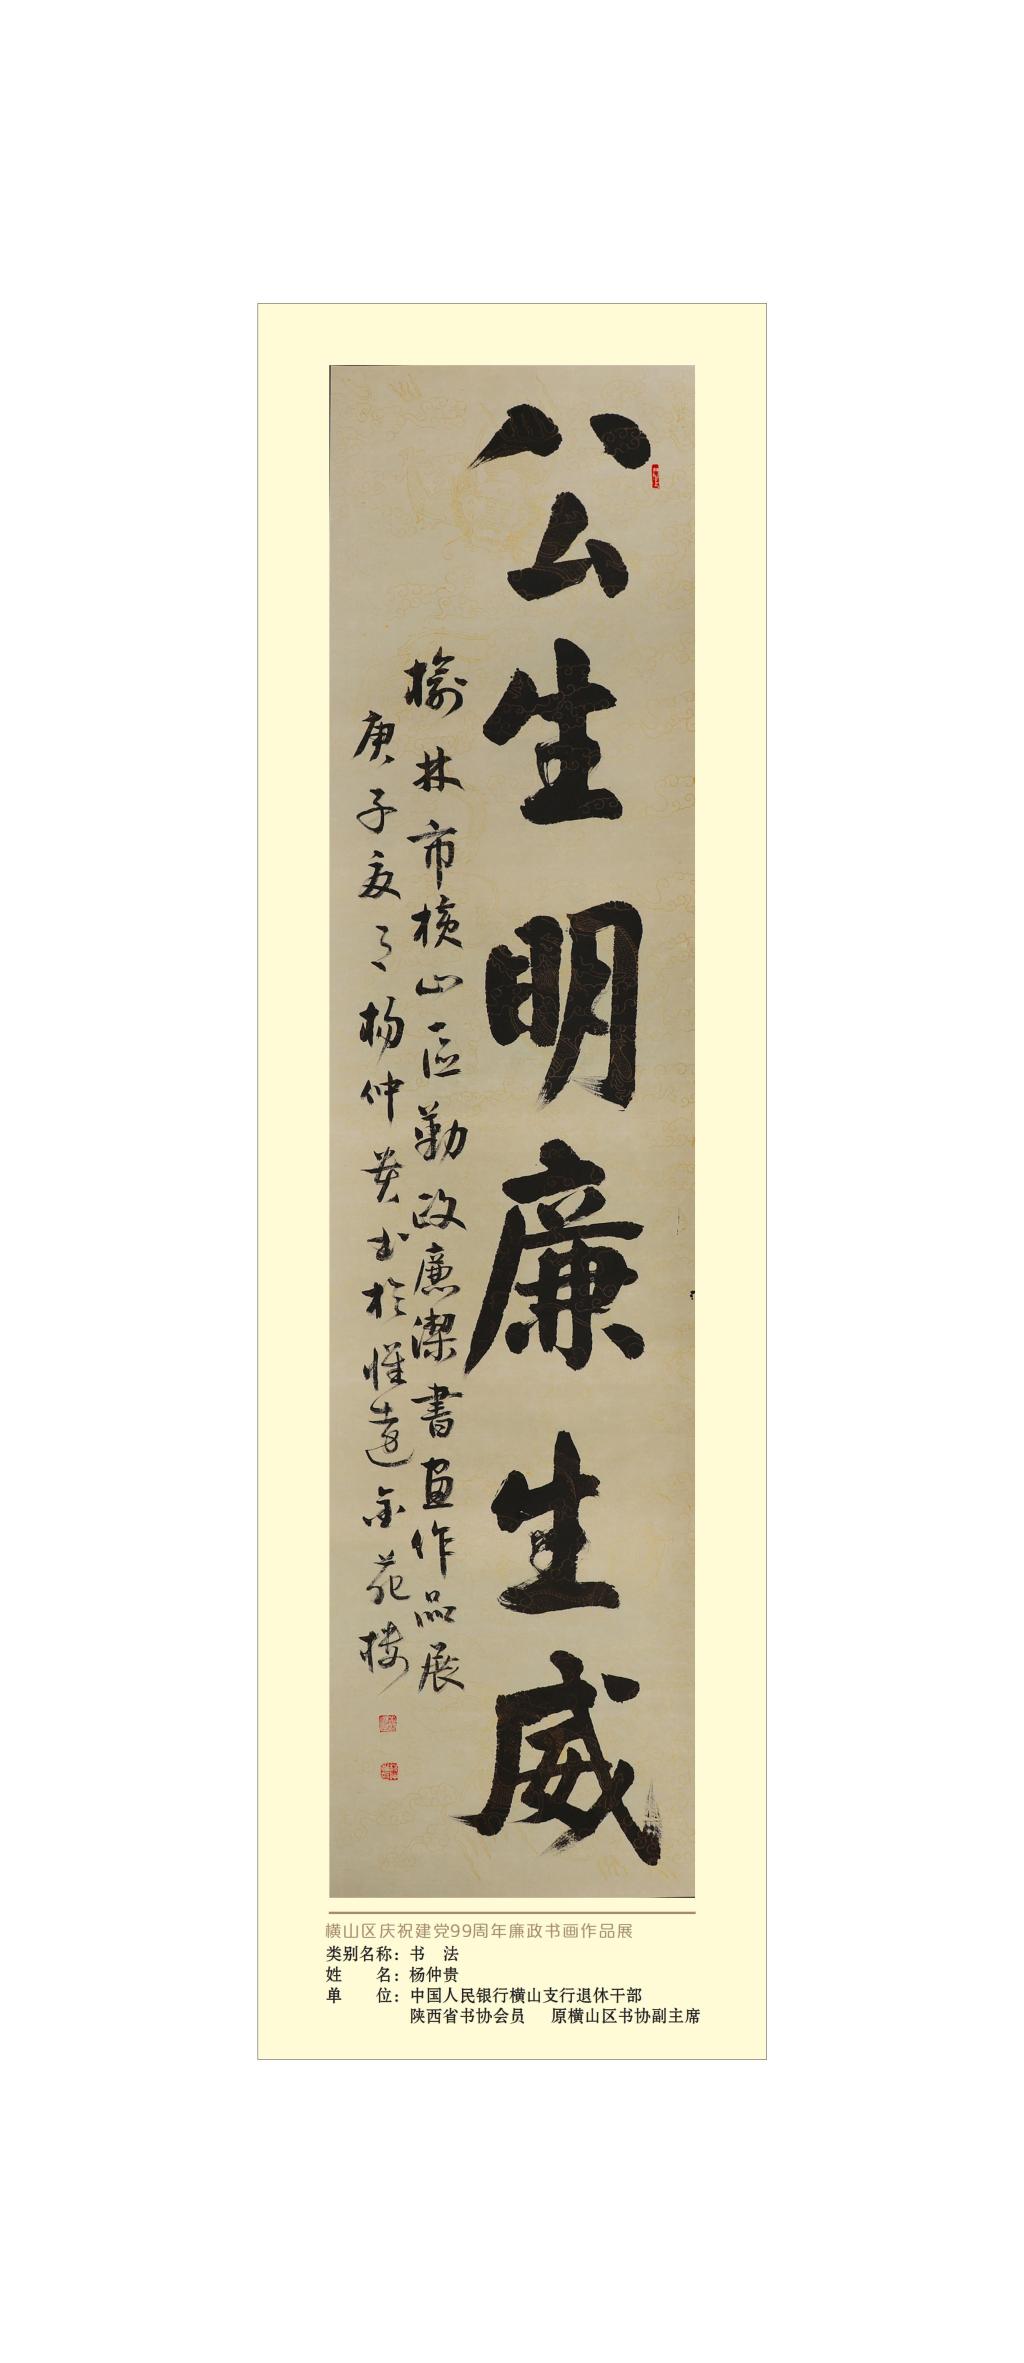 公生明廉生威
榆林市横山區勤政廉潔書画作品展
庚子夏月杨仲贵书於惟達金苑楼
横山区庆祝建党99周年廉政书画作品展
类别名称：书　法
姓　　名：杨仲贵
单　　位：中国人民银行横山支行退休干部
陕西省书协会员　原横山区书协副主席